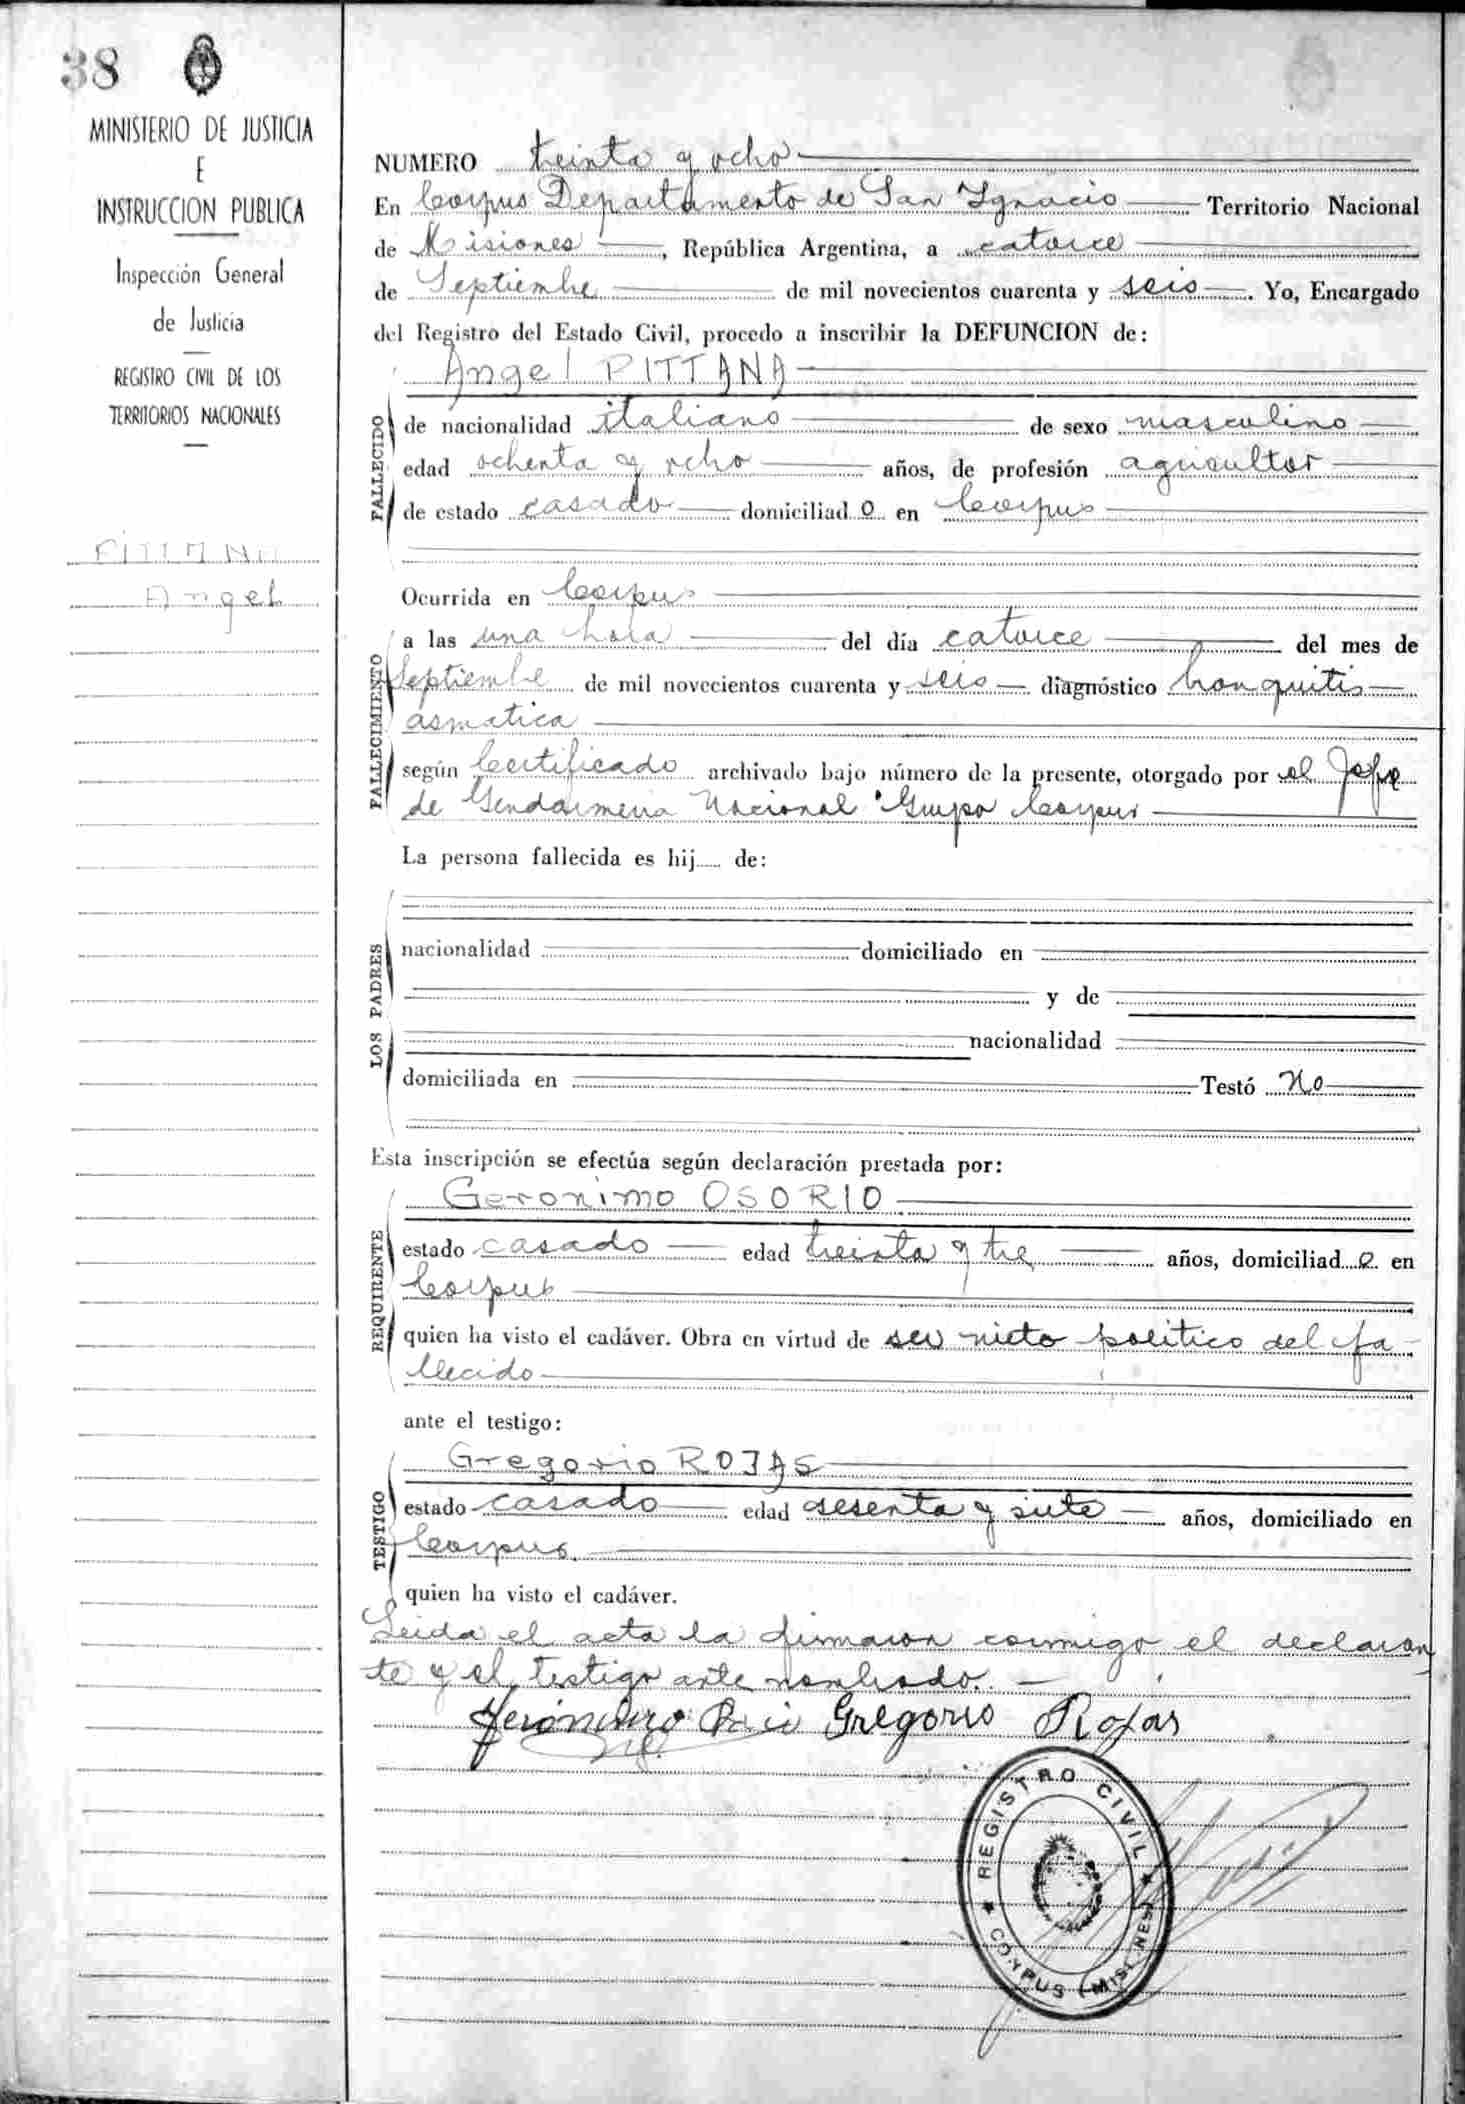 38
MINISTERIO DE JUSTICIA
E
INSTRUCCION PUBLICA
Inspección General
de Justicia
REGISTRO CIVIL DE LOS
TERRITORIOS NACIONALES
PITTANA
Angel
NUMERO treinta y ocho
En Corpus Departamento de San Ignacio Territorio Nacional
de Misiones, República Argentina, a catorce
de Septiembre de mil novecientos cuarenta y seis. Yo, Encargado
del Registro del Estado Civil, procedo a inscribir la DEFUNCION de:
Angel PITTANA
FALLECIDO
de nacionalidad italiano de sexo masculino
edad ochenta y ocho años, de profesión agricultor
de estado casado domiciliad o en Corpus
Ocurrida en Corpus
FALLECIMIENTO
a las una hora del día catorce del mes de
Septiembre de mil novecientos cuarenta y seis diagnóstico bronquitis
asmatica
según Certificado archivado bajo número de la presente, otorgado por el Jefe
de Gendarmeria Nacional "Grupo Corpus
La persona fallecida es hij..... de:
LOS PADRES
nacionalidad domiciliado en
y de
nacionalidad
domiciliada en Testó No
Esta inscripción se efectúa según declaración prestada por:
Geronimo OSORIO
REQUIRENTE
estado casado edad treinta y tre años, domiciliad o en
Corpus
quien ha visto el cadáver. Obra en virtud de ser nieto politico del fa-
llecido
ante el testigo:
Gregorio ROJAS
TESTIGO
estado casado edad sesenta y siete años, domiciliado en
Corpus.
quien ha visto el cadáver.
Leida el acta la firmaron conmigo el declaran
te y el testigo ante nombrado.
Gregorio Rojas
REGISTRO CIVIL
CORPUS (MISIONES)